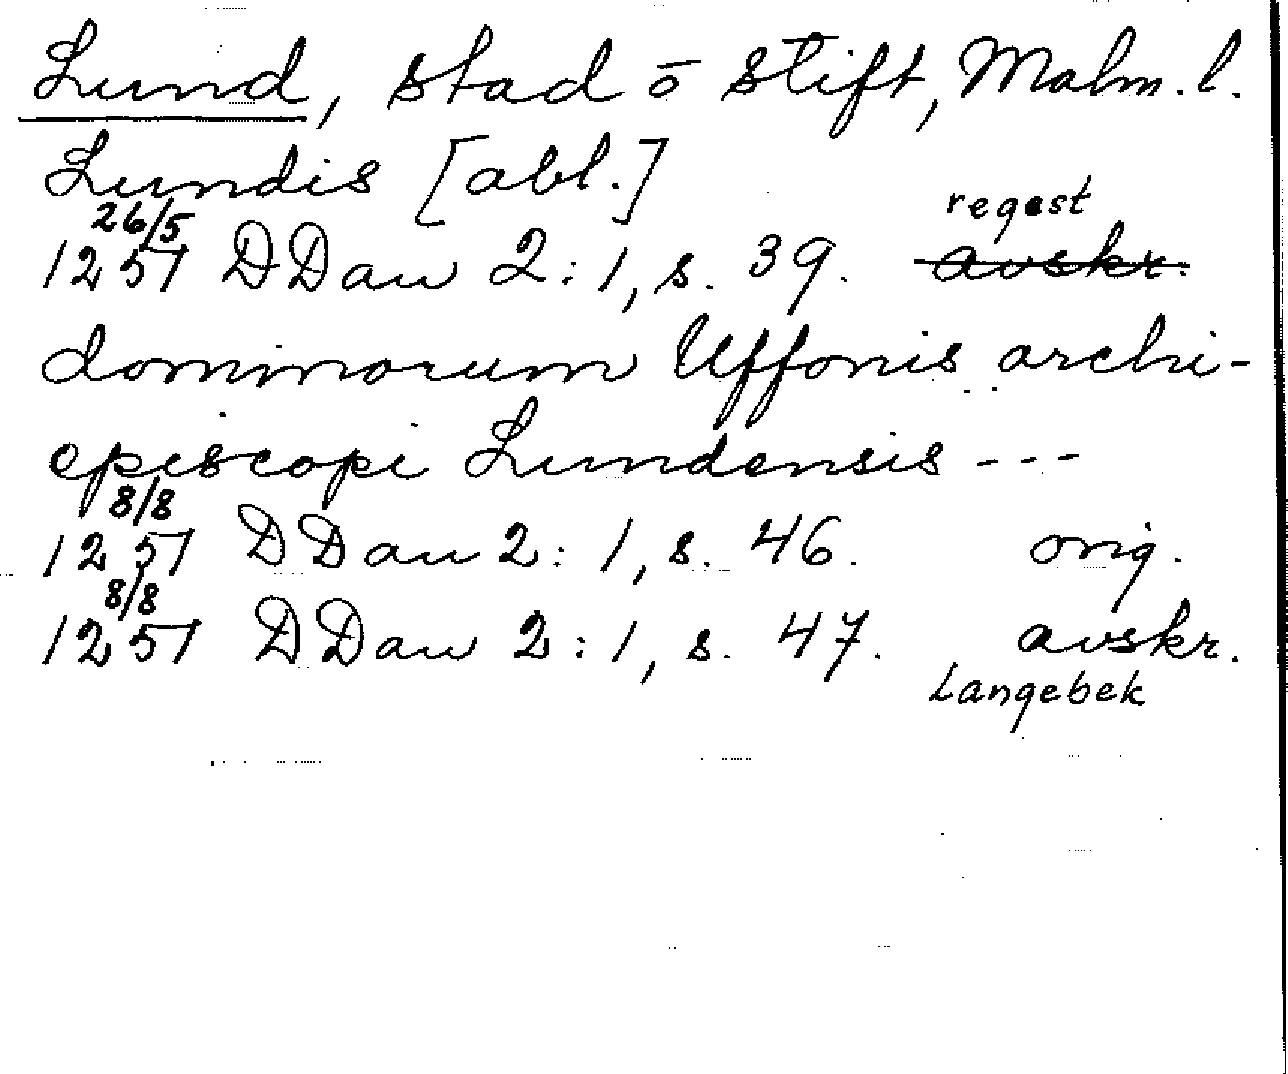 Lund, stad o stift, Malm. l.
Lundis [abl.]
26/5 regest
1257 DDan 2:1, s. 39. avskr.
dominorum Uffonis archi-
episcopi Lundensis ---
8/8
1257 DDan 2:1, s. 46. orig.
8/8
1257 DDan 2:1, s. 47. avskr.
Langebek